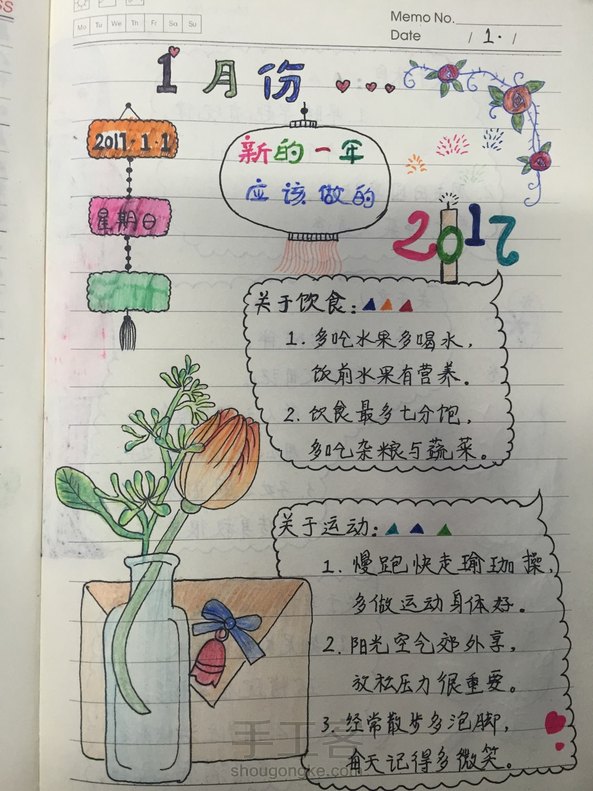 Memo No.
Mo Tu We Th Fr Sa Su
Date / 1. /
1月份
2017.1.1
星期日
新的一年
应该做的
2017
关于饮食:
1. 多吃水果多喝水,
饭前水果有营养。
2. 饮食最多七分饱,
多吃杂粮与蔬菜。
关于运动:
1. 慢跑快走瑜珈操,
多做运动身体好。
2. 阳光空气郊外享,
放松压力很重要。
3. 经常散步多泡脚,
每天记得多微笑。
手工客
shougongke.com